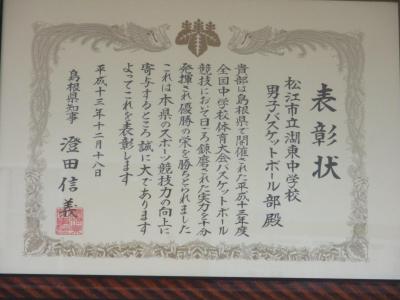 表彰状
松江市立湖東中学校
男子バスケットボール部殿
貴部は島根県で開催された平成十三年度
全国中学校体育大会バスケットボール
競技において日ごろ錬磨された実力を十分
発揮され優勝の栄を勝ちとられました
これは本県のスポーツ競技力の向上に
寄与するところ誠に大であります
よってこれを表彰します
平成十三年十二月十八日
島根県知事 澄田信義